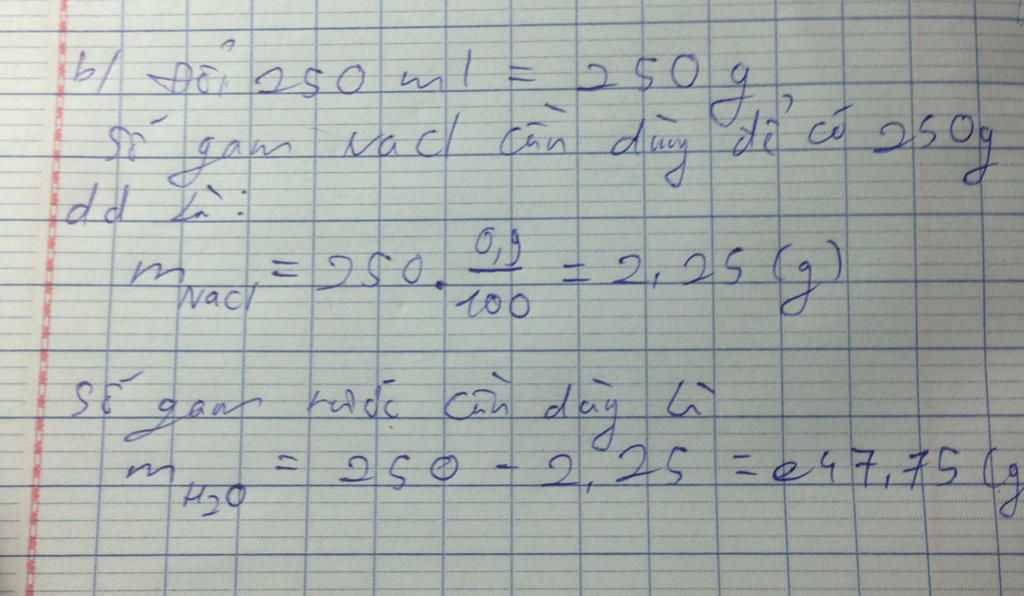 b/ Đổi 250 ml = 250 g
Số gam NaCl cần dùng để có 250g
dd là:
m NaCl = 250 . 0,9/100 = 2,25 (g)
Số gam nước cần dùng là
m H2O = 250 - 2,25 = 247,75 (g